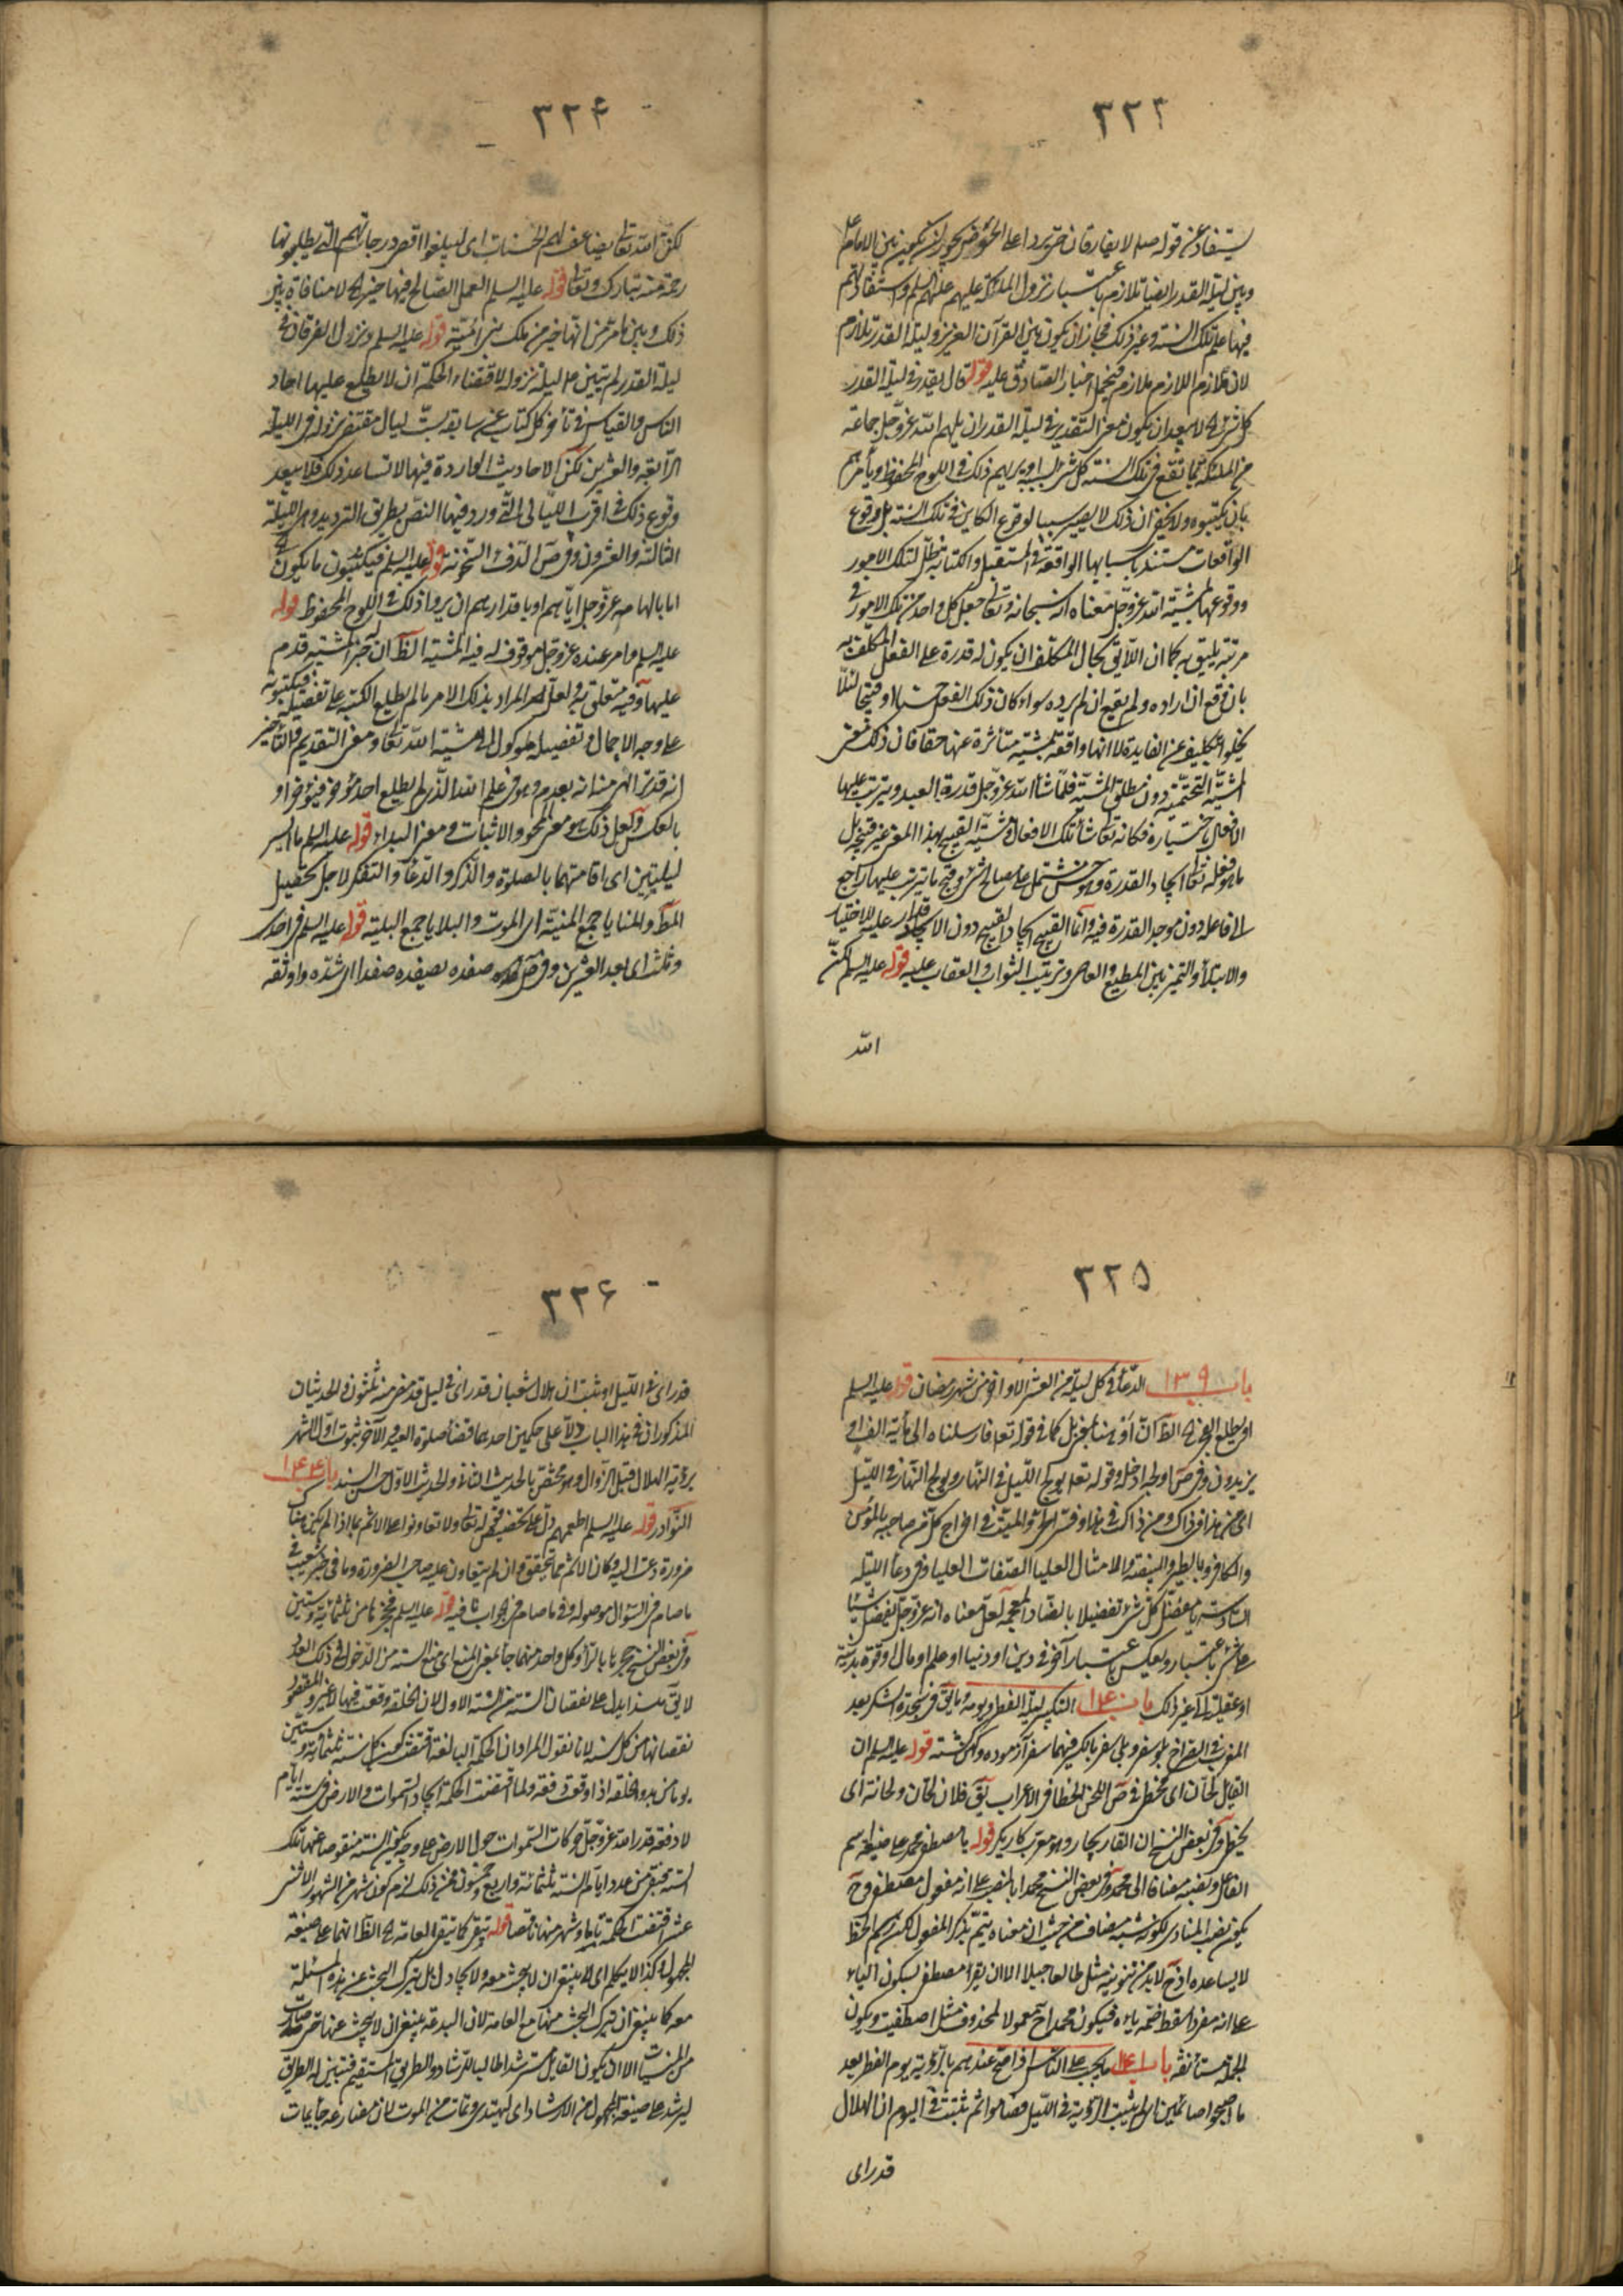 ٣٢٣
يستفاد عن قوله صلم لا يفارقان حتى يردا على الحوض يجوز ان يكون بين الامام ع
وبين ليلة القدر ايضا تلازم باعتبار نزول الملئكة عليهم عليهم السلم واستفادتهم
فيها علم تلك السنة وغير ذلك فجاز ان يكون بين القرآن العزيز وليلة القدر تلازم
لان ملازم اللازم ملازم اخبار الصادق عليه قوله قال يقدر في ليلة القدر
كل شئ الخ لا يبعد ان يكون معنى التقدير في ليلة القدر ان يلهم الله عزوجل جماعة
من الملئكة بما تقع في تلك السنة كل شئ بسببه او يريهم ذلك في اللوح المحفوظ ويأمرهم
بان يكتبوه ولا يخفى ان ذلك لا يصير سببا لوقوع الكاين في تلك السنة بل وقوع
الواقعات مستند باسبابها الواقعة في المستقبل والكتابة تظل لتلك الامور
ووقوعها بمشية الله عزوجل معناه انه سبحانه وتعالى جعل كل واحد من تلك الامور في
مرتبة يليق به كما ان اللايق بحال المكلف ان يكون له قدرة على الفعل المكلف به
بان يقع ان اراده ولم يقع ان لم يرده سواء كان ذلك الفعل حسنا او قبيحا لئلا
يخلو التكليف عن الفايدة لا انها واقعة بمشية متأثرة عنها حقا فان ذلك معنى
المشية التحتمية دون مطلق المشية فلما شاء الله عزوجل قدرة العبد ويترتب عليها
الافعال باختياره فكانه تعالى شاء تلك الافعال ومشية القبيح بهذا المعنى غير قبيح بل
ما هو فعله تعالى ايجاد القدرة وهو حسن مشتمل على مصالح شتى وقبح ما يترتب عليها راجع
الى فاعله دون موجد القدرة فيه وانما القبيح ايجاد القبيح دون الاختيار
والابتلاء والتميز بين المطيع والعاصى وترتيب الثواب والعقاب عليه قوله عليه السلم لكن
الله
٣٢٤
لكن الله تعالى يضاعف لهم الحسنات اى ليبلغوا اقصى درجاتهم التي يطلبونها
رحمة منه تبارك وتعالى قوله عليه السلم العمل الصالح فيها خير الخ لا منافاة بين
ذلك وبين ما مر من انها خير من ملك بنى امية قوله عليه السلم ونزول الفرقان في
ليلة القدر لم يتبين ع ليلة نزوله لاقتضاء الحكمة ان لا يطلع عليها احاد
الناس والقياس في تأخر كل كتاب عن سابقه بست ليال مقتض نزوله في الليلة
الرابعة والعشرين لكن الاحاديث الواردة فيها لا تساعد ذلك فلا يبعد
وقوع ذلك في اقرب الليالى التي ورد فيها النص بطريق الترديد وهو الليلة
الثالثة والعشرون وفي ص الدفئ السخونة قوله عليه السلم فيكتبون ما يكون
اما بالهامه عزوجل اياهم او باقدارهم ان يروا ذلك في اللوح المحفوظ قوله
عليه السلم وامر عنده عزوجل موقوف له فيه المشية الظ ان خبر المشية قدم
عليها وفيه متعلق به ولعل المراد بذلك الامر ما لم يطلع الكتبة على تفصيله فيكتبونه
على وجه الاجمال وتفصيله موكول الى مشية الله تعالى ومعنى التقديم والتأخير
انه قد يرى الامر منا انه يقدم وهو في علم الله الذي لم يطلع احد مؤخر فيؤخر او
بالعكس ولعل ذلك هو معنى المحو والاثبات ومعنى البداء قوله عليه السلم ما ايسر
ليلتين اى اقامتهما بالصلوة والذكر والدعاء والتفكر لاجل تحصيل
المط والمنايا جمع المنية اى الموت والبلايا جمع البلية قوله عليه السلم في احدى
وثلث اى بعد العشرين وفي ص صفده يصفده صفدا اى شده واوثقه
٣٢٥
باب ١٣٩ الدعاء في كل ليلة من العشر الاواخر من شهر رمضان قوله عليه السلم
او يطلع الفجر الخ الظ ان او هنا بمعنى بل كما في قوله تعه فارسلناه الى مأية الف او
يزيدون وفي ص اولجه ادخله وقوله تعه يولج الليل في النهار ويولج النهار في الليل
اى من هذا في ذاك ومن ذاك في هذا وفسر الحى والميت في اخراج كل من صاحبه بالمؤمن
والكافر وبالطير والبيضة والامثال العليا الصفات العليا وفي دعاء الليلة
السادسة يا مفضل كل شئ تفضيلا بالضاد المعجمة لعل معناه انه عزوجل يفضل شيئا
على شئ باعتبار وبعكس باعتبار آخر في دين او دنيا او علم او مال او قوة بدنية
او عقلية الى غير ذلك باب ١٤٠ التكبير ليلة الفطر ويومه وما يق في سجدة الشكر بعد
المغرب في الصراح بلو سفر وبلى سفر بالكسر فيهما سفر آزموده وكهن گشته قوله عليه السلم ان
القايل لحان اى مخطئ في ص اللحن الخطا في الاعراب يق فلان لحان ولحانة اى
يخطئ وفي بعض النسخ ان القاريجار وهو معرب كاريگر قوله يا مصطفى محمد على صيغة اسم
الفاعل ونصبه مضافا الى محمد وفي بعض النسخ محمدا بالنصب على انه مفعول مصطفى وح
يكون نصب المنادى لكونه شبه مضاف من حيث ان معناه يتم بذكر المفعول لكن رسم الخط
لا يساعده اذ ح لا بد من تنوينه مثل طالعا جبلا الا ان يقرء مصطفى بسكون الياء
على انه مفرد اسقط ضمة يائه فيكون محمدا ح معمولا لمحذوف مثل اصطفيت ويكون
الجملة مستأنفة باب ١٤١ ما يجب على الناس اذا صح عندهم بالرؤية يوم الفطر بعد
ما اصبحوا صائمين اى لم يثبت الرؤية في الليل فصاموا ثم ثبتت في اليوم ان الهلال
قد راى
٣٢٦
قد راى في الليل او ثبت ان هلال شعبان قد راى في ليل قد مضى منه ثلثون والحديثان
المذكوران في هذا الباب دلا على حكمين احدهما قضاء صلوة العيد والآخر ثبوت اول الشهر
برؤية الهلال قبل الزوال وهو مختص بالحديث الثانى والحديث الاول حسن السند باب ١٤٢
النوادر قوله عليه السلم اطعمهم دل على تخصيص قوله تعالى ولا تعاونوا على الاثم بما اذا لم يكن هناك
ضرورة دعت اليه وكان الاثم مما يتحقق وان لم يتعاون عليه صاحب الضرورة وما في خبر شعيب في
ما صام في السؤال موصولة وفي ما صام في الجواب نافية قوله عليه السلم فحجز ثامن ثلثمائة وستين
وفي بعض النسخ حجرها بالراء وكل واحد منهما جاء بمعنى المنع اى منع الستة من الدخول في ذلك العدد
لا يق هذا يدل على نقصان الستة من السنة الاولى لان الخلقة وقعت فيها لا غير والمقصود
نقصانها من كل سنة لانا نقول المراد ان الحكمة البالغة اقتضت كون كل سنة ثلثمائة وستين
يوما من بدو الخلقة اذا وقعت دفعة ولما اقتضت الحكمة ايجاد السموات والارض في ستة ايام
لا دفعة قدر الله عزوجل حركات السموات حول الارض على وجه يكون السنة منقوصا عنها تلك
الستة فبقى من عدد ايام السنة ثلثمائة واربع وخمسون فمن ذلك لزم كون شهر من الشهور الاثنى
عشر اقتضت الحكمة تاما وشهر منها ناقصا قوله يتقى كما يتقى العامة الخ الظ انهما على صيغة
المجهول وكذا لا يكلم اى لا ينبغى ان لا يبحث معه ولا يجادل بل يترك البحث عن هذه المسئلة
معه كما ينبغى ان يترك البحث منها مع العامة لان البدعة ينبغى ان لا يبحث عنها حتى صارت
من المنسيات الا ان يكون القايل مسترشدا طالبا للرشاد والطريق المستقيم فتبين له الطريق
ليرشد على صيغة المجهول من الارشاد اى ليهتدى وتمات من الموت لان مضارعه جاء يمات